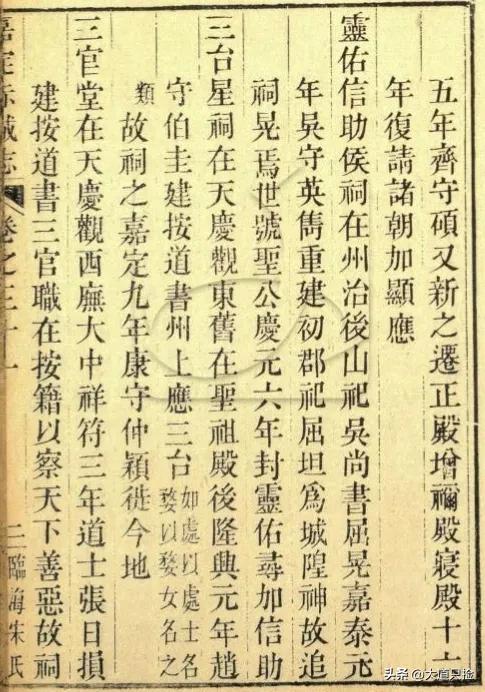 五年齊守碩又新之遷正殿增禰殿寢殿十六
年復請諸朝加顯應
靈佑信助侯祠在州治後山祀吳尚書屈晃嘉泰元
年吳守英雋重建初郡祀屈坦爲城隍神故追
祠晃焉世號聖公慶元六年封靈佑尋加信助
三台星祠在天慶觀東舊在聖祖殿後隆興元年趙
守伯圭建按道書州上應三台如處以處士名婺以婺女名之
類故祠之嘉定九年康守仲穎徙今地
三官堂在天慶觀西廡大中祥符三年道士張日損
建按道書三官職在按籍以察天下善惡故祠
嘉定赤城志 卷之三十一 二臨海宋氏
头条 @大道只险